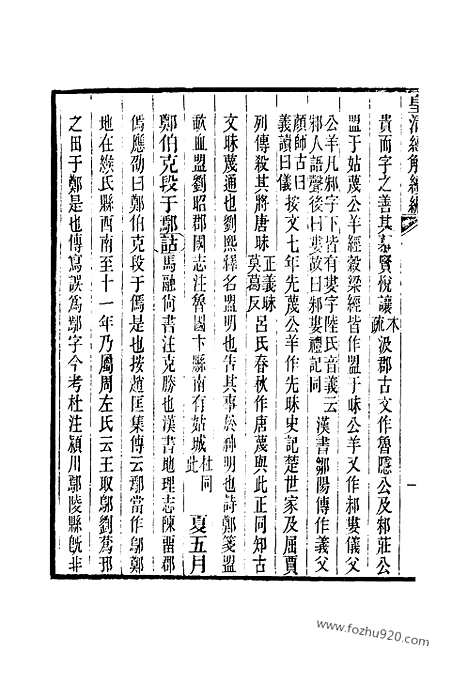 皇清經解續編
貴而字之善其慕賢悅讓 本疏 汲郡古文作魯隱公及邾莊公
盟于姑蔑公羊經穀梁經皆作盟于眛公羊又作邾婁儀父
公羊凡邾字下皆有婁字陸氏音義云邾人語聲後曰婁故曰邾婁禮記同 漢書鄒陽傳作義父
顏師古曰義讀曰儀 按文七年先蔑公羊作先眛史記楚世家及屈賈
列傳殺其將唐眛 正義眛莫葛反 呂氏春秋作唐蔑與此正同知古
文眛蔑通也劉熙釋名盟明也告其事於神明也詩鄭箋盟
歃血盟劉昭郡國志注魯國卞縣南有姑城 杜同此 夏五月
鄭伯克段于鄢 詁 馬融尙書注克勝也漢書地理志陳畱郡
傿應劭曰鄭伯克段于傿是也按趙匡集傳云鄢當作鄔鄭
地在緱氏縣西南至十一年乃屬周左氏云王取鄔劉蒍邘
之田于鄭是也傳寫誤爲鄢字今考杜注潁川鄢陵縣旣非
一
www.fozhu920.com